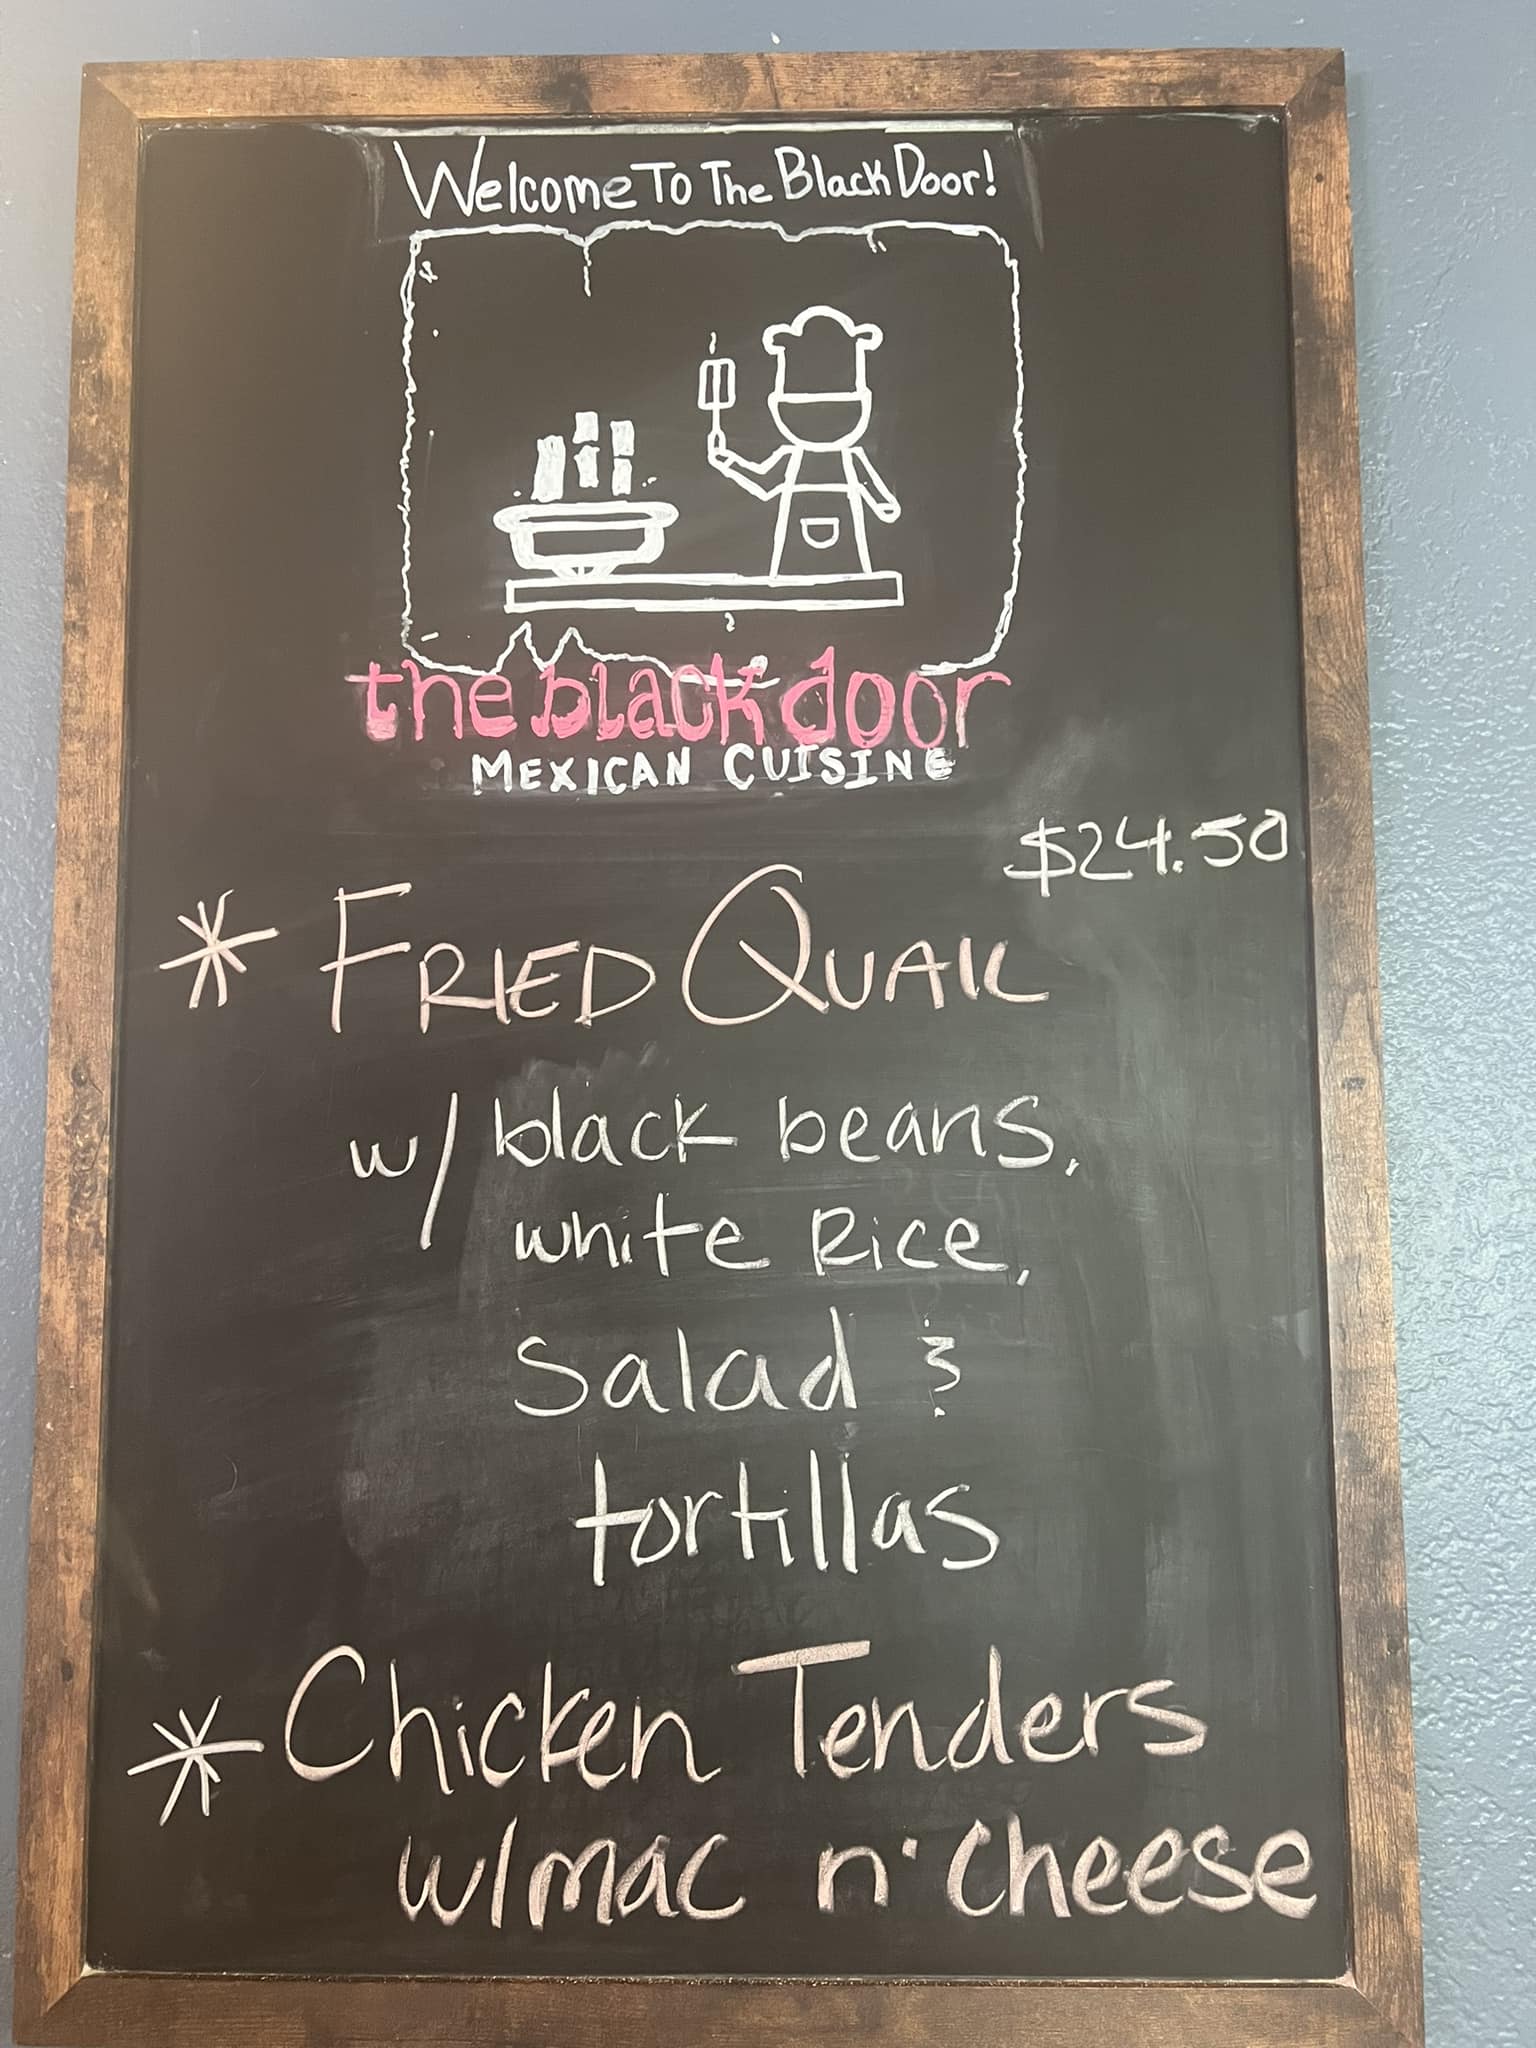 Welcome To The Black Door!
the black door
MEXICAN CUISINE
$24.50
* FRIED QUAIL
w/ black beans,
white Rice,
Salad &
tortillas
* Chicken Tenders
w/mac n' cheese